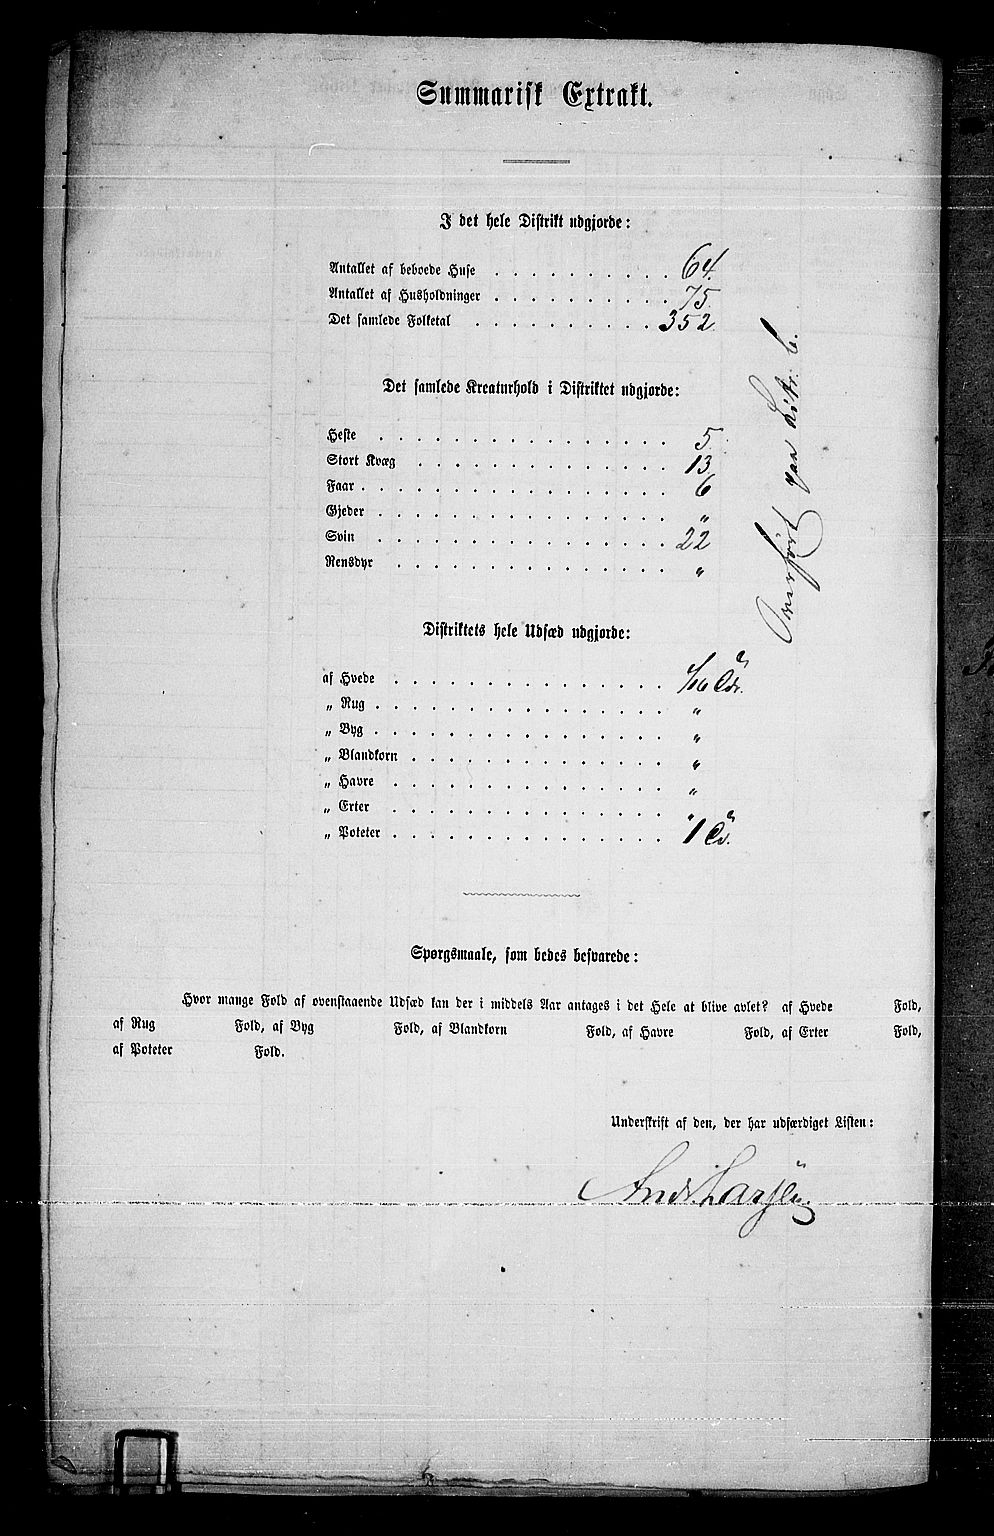 Summarisk Extrakt.
I det hele Distrikt udgjorde:
Antallet af beboede Huse . . . . . . . . . . 64.
Antallet af Husholdninger . . . . . . . . . . 75.
Det samlede Folketal . . . . . . . . . . 352
Det samlede Kreaturhold i Distriktet udgjorde:
Heste . . . . . . . . . . . . . . . 5.
Stort Kvæg . . . . . . . . . . . . . 13
Faar . . . . . . . . . . . . . . . . 6
Gjeder . . . . . . . . . . . . . . . "
Svin . . . . . . . . . . . . . . . 22
Rensdyr . . . . . . . . . . . . . . "
Overført paa Litr. C.
Distriktets hele Udsæd udgjorde:
af Hvede . . . . . . . . . . . . . . 1/16 Tdr.
„ Rug . . . . . . . . . . . . . . . "
„ Byg . . . . . . . . . . . . . . . "
„ Blandkorn . . . . . . . . . . . . . "
„ Havre . . . . . . . . . . . . . . "
„ Erter . . . . . . . . . . . . . . "
„ Poteter . . . . . . . . . . . . . . 1
Spørgsmaale, som bedes besvarede:
Hvor mange Fold af ovenstaaende Udsæd kan der i middels Aar antages i det Hele at blive avlet? af Hvede Fold,
af Rug Fold, af Byg Fold, af Blandkorn Fold, af Havre Fold, af Erter Fold,
af Poteter Fold.
Underskrift af den, der har udfærdiget Listen:
Andr. Larsen